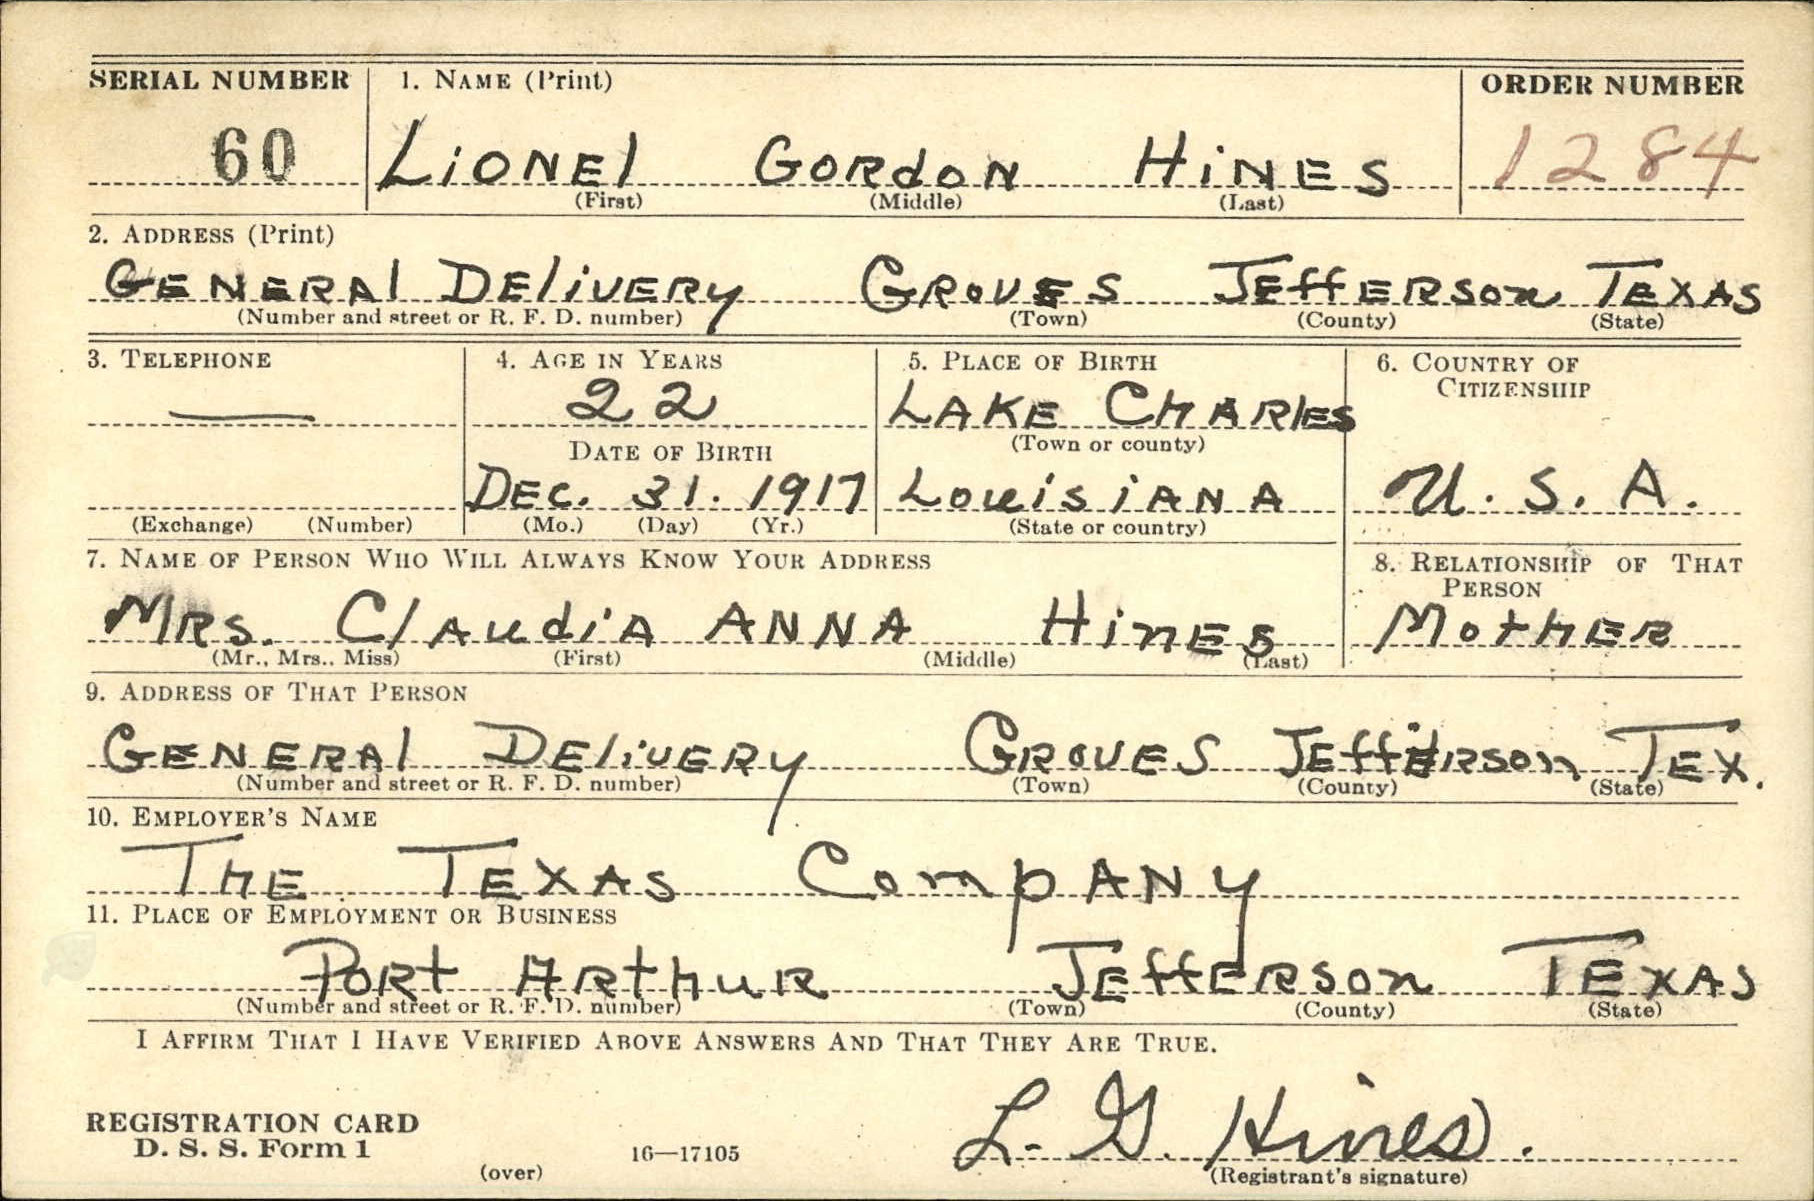 SERIAL NUMBER 1. NAME (Print) ORDER NUMBER
60 LiONEl GORdON HiNES 1284
(First) (Middle) (Last)
2. ADDRESS (Print)
GENERAl DEliVERY GROVES JEffERSon TEXAS
(Number and street or R. F. D. number) (Town) (County) (State)
3. TELEPHONE 4. AGE IN YEARS 5. PLACE OF BIRTH 6. COUNTRY OF CITIZENSHIP
— 22 LAKE CHARlES
DATE OF BIRTH (Town or county)
DEC. 31. 1917 LouisiANA U. S. A.
(Exchange) (Number) (Mo.) (Day) (Yr.) (State or country)
7. NAME OF PERSON WHO WILL ALWAYS KNOW YOUR ADDRESS 8. RELATIONSHIP OF THAT PERSON
MRS. ClAudiA ANNA HinES MotHER
(Mr., Mrs., Miss) (First) (Middle) (Last)
9. ADDRESS OF THAT PERSON
GENERAl DEliVERY GROVES JEffERSon TEX.
(Number and street or R. F. D. number) (Town) (County) (State)
10. EMPLOYER'S NAME
THE TEXAS CompANY
11. PLACE OF EMPLOYMENT OR BUSINESS
PORt ARtHUR JEffERSon TEXAS
(Number and street or R. F. D. number) (Town) (County) (State)
I AFFIRM THAT I HAVE VERIFIED ABOVE ANSWERS AND THAT THEY ARE TRUE.
REGISTRATION CARD
D. S. S. Form 1 16—17105 L. G. Hines.
(over) (Registrant's signature)